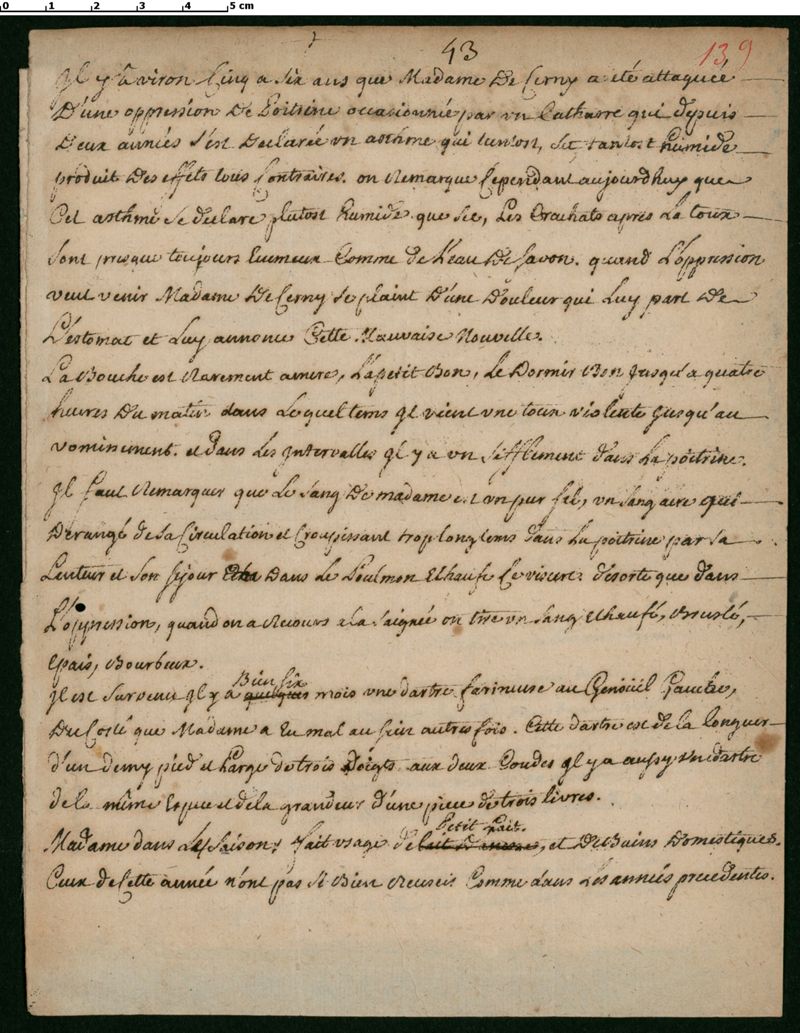 0 1 2 3 4 5 cm
43
139
Il y a Environ Cinq a six ans que Madame De Cerny a été attaquée
D'une oppression De Poitrine occasionnée par un Catharre qui depuis
Deux années s'est Declarée un asthme qui tantost, Sec tantost humide
produit Des effets tous Contraires. on Remarque Cependant aujourdhuy que
Cet asthme se declare plutost humide que sec, Les Crachats apres La toux
sont presque toujours Ecumeux Comme de L'eau De savon. quand L'oppression
veut venir Madame De Cerny se plaint D'une Douleur qui Luy part De
L'estomac et Luy annonce Cette Mauvaise Nouvelle.
La Bouche est Rarement amere, L'apetit Bon, Le Dormir Bon jusqu'a quatre
heures Du matin dans Lequel tems jl vient une toux violente jusqu'au
vomissement. et dans Les jntervalles jl y a un sifflement dans La poitrine.
jl faut Remarquer que Le sang De madame est un pur fil, un sang acre qui
Derangé de sa Circulation et Croupissant trop longtems dans La poitrine par sa
Lenteur et son sejour Dans Le Poulmon Echaufe Ce viscere desorte que dans
L'oppression, quand on a Recours a La saignée on tire un sang Echaufé, Bruslé,
Epais, Bourbeux.
Bien six
jl est survenu jl y a quelques mois une dartre farineuse au Genoüil Gauche,
Du Costé que Madame a Eu mal au sein autres fois. Cette dartre est de la longuer
d'un demy pied et Large de trois Doigts aux deux Coudes jl y a aussy une dartre
de la même Espece et de la grandeur d'une piece de trois livres.
Petit Lait.
Madame dans Les saisons fait usage de lait D'anesse, et De Bains Domestiques.
Ceux de Cette année n'ont pas si Bien Reussis Comme dans Les années precedentes.